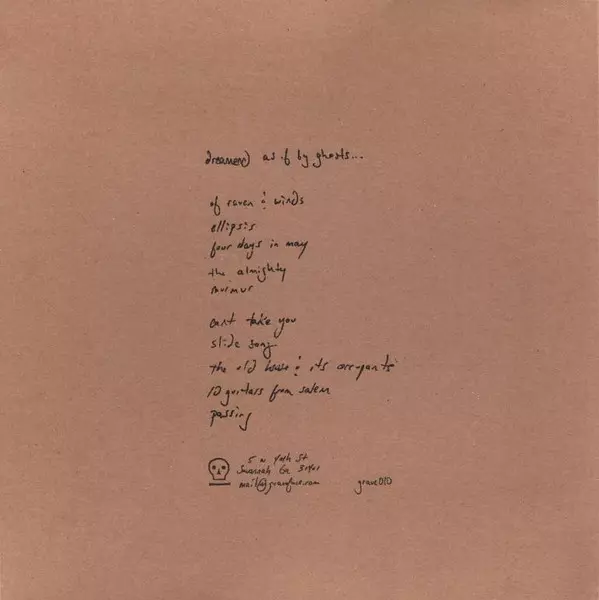 dreamend as if by ghosts...
of raven & winds
ellipsis
four days in may
the almighty
murmur
can't take you
slide song
the old house & its occupants
10 guitars from salem
passing
5 w york st
Savannah Ga 31401
mail@graveface.com
grave010